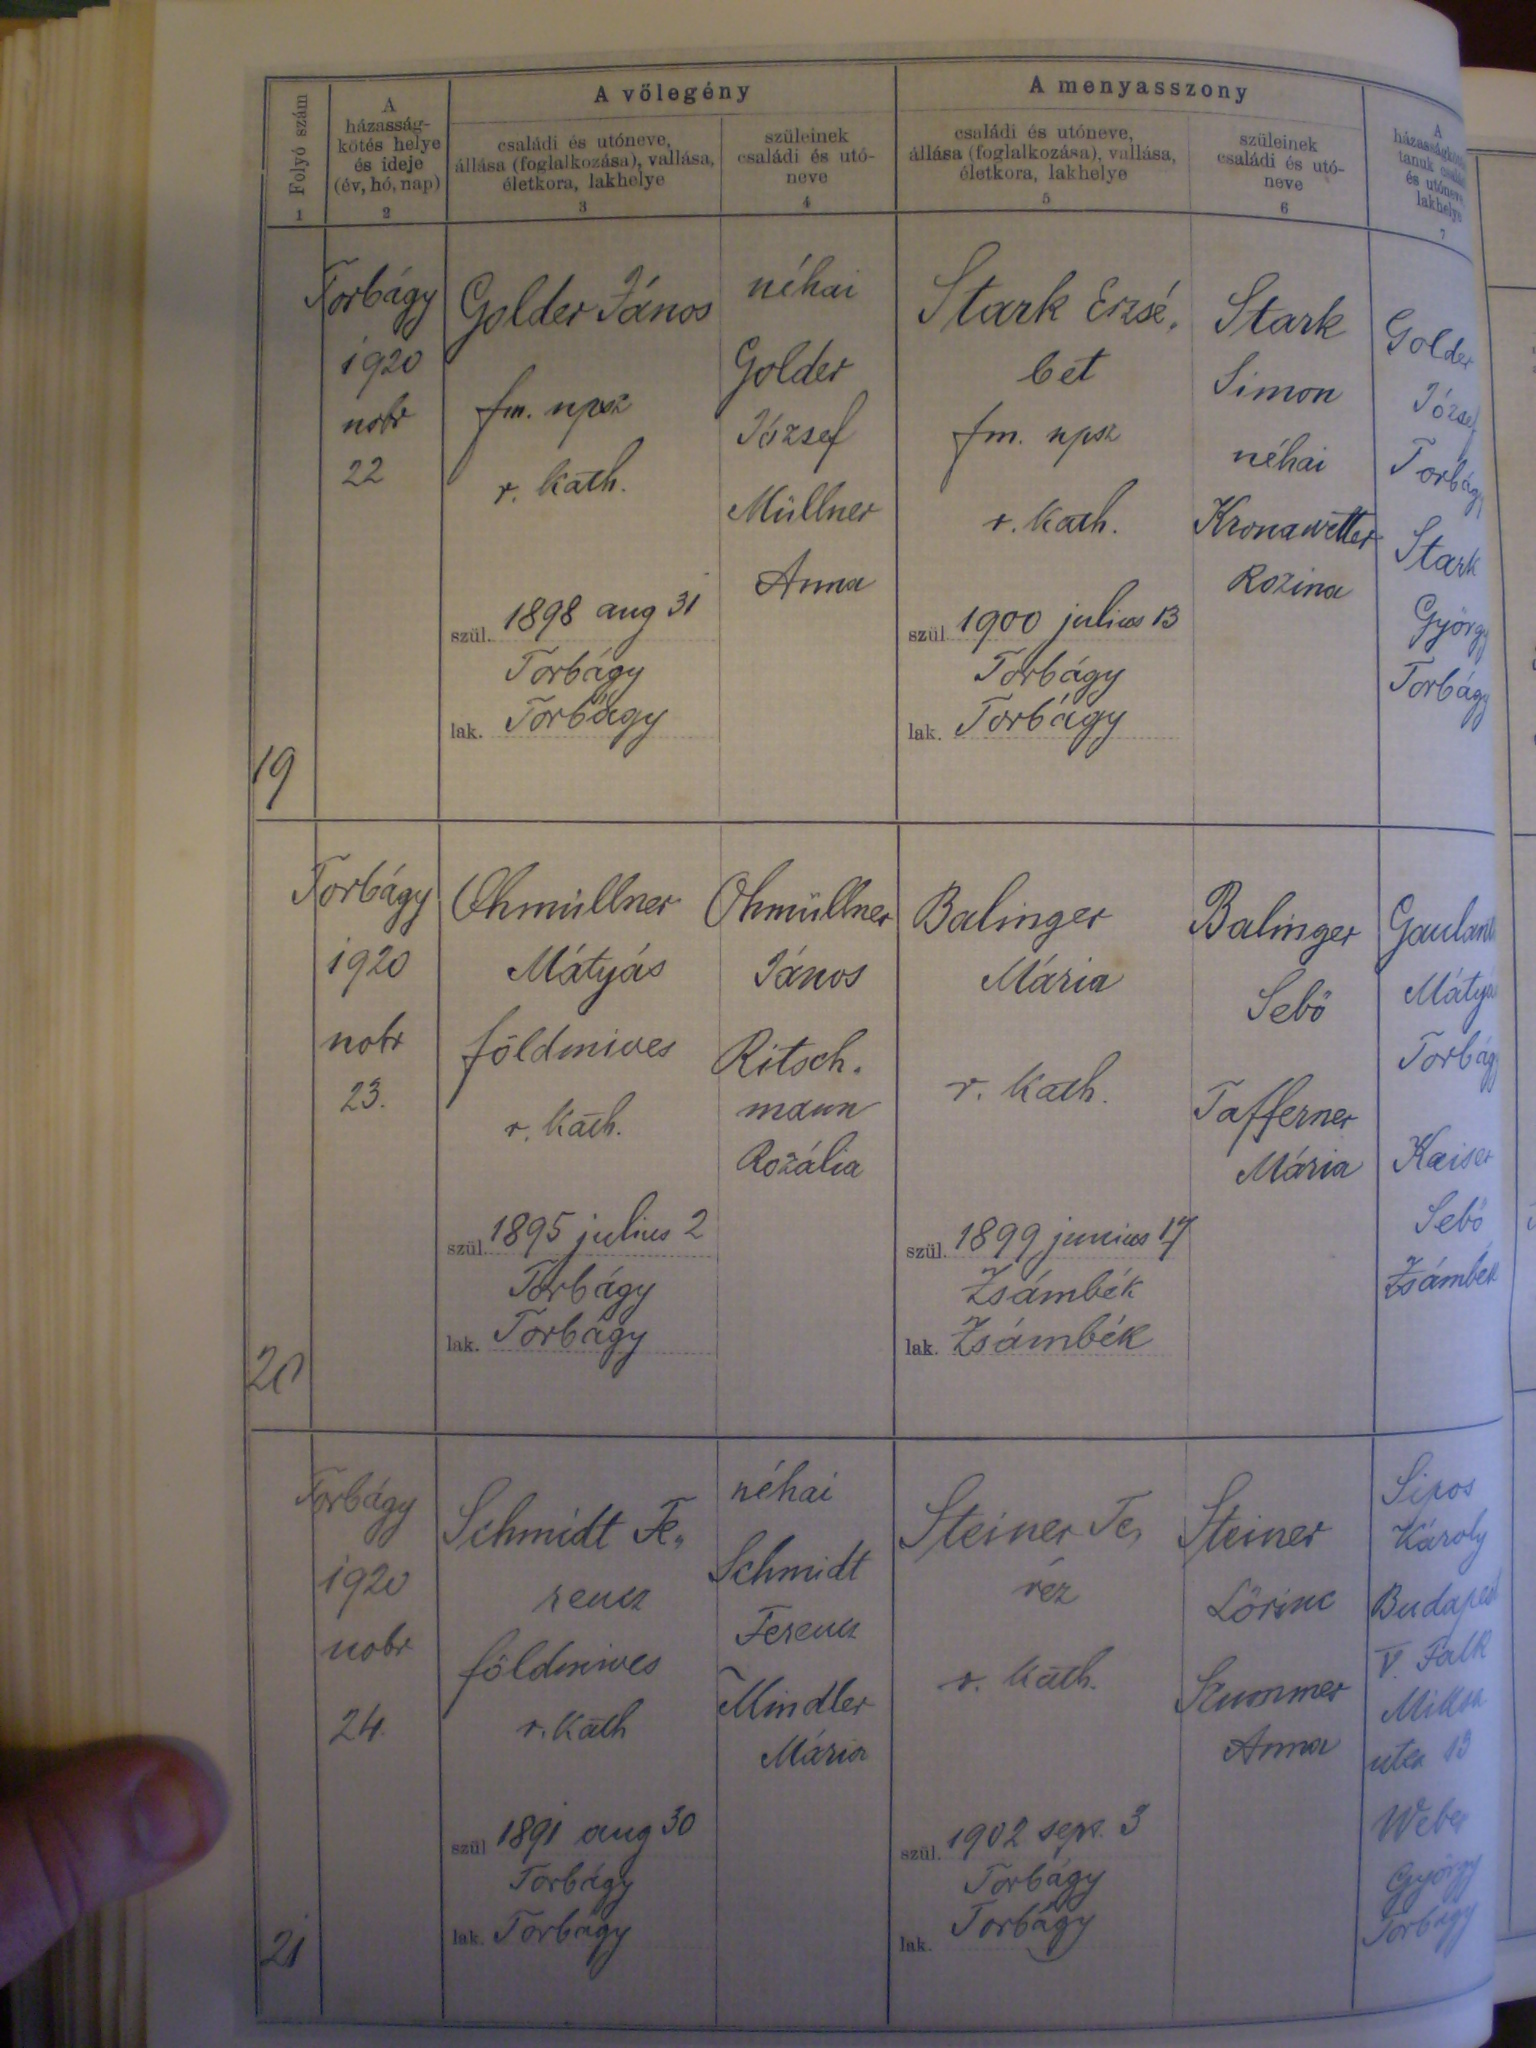 A vőlegény
A menyasszony
Folyó szám
A
házasság-
kötés helye
és ideje
(év, hó, nap)
családi és utóneve,
állása (foglalkozása), vallása,
életkora, lakhelye
szüleinek
családi és utó-
neve
családi és utóneve,
állása (foglalkozása), vallása,
életkora, lakhelye
szüleinek
családi és utó-
neve
A
tanuk
és utóneve,
lakhelye
1
2
3
4
5
6
7
19
Torbágy
1920
nobr
22
Golder János
fm. npsz
r. kath.
szül. 1898 aug 31
Torbágy
lak. Torbágy
néhai
Golder
József
Müllner
Anna
Stark Erzsé„
bet
fm. npsz
r. kath.
szül. 1900 julius 13
Torbágy
lak. Torbágy
Stark
Simon
néhai
Kronawetter
Rozina
Golder
József
Torbágy
Stark
György
Torbágy
20
Torbágy
1920
nobr
23.
Ohmüllner
Mátyás
földmives
r. kath.
szül. 1895 julius 2
Torbágy
lak. Torbágy
Ohmüllner
János
Ritsch„
mann
Rozália
Balinger
Mária
r. kath.
szül. 1899 junius 17
Zsámbék
lak. Zsámbék
Balinger
Sebő
Tafferner
Mária
Mátyás
Torbágy
Kaiser
Sebő
Zsámbék
21
Torbágy
1920
nobr
24.
Schmidt Fe„
rencz
földmives
r. kath
szül 1891 aug 30
Torbágy
lak. Torbágy
néhai
Schmidt
Ferencz
Mindler
Mária
Steiner Te„
réz
r. kath.
szül. 1902 sept. 3
Torbágy
lak. Torbágy
Steiner
Lörinc
Stummer
Anna
Sipos
Károly
Budapest
V. Falk
Miksa
utca 13
Weber
György
Torbágy